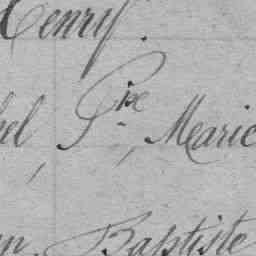 Henry.
hel, Pre, Marie
n, Baptiste